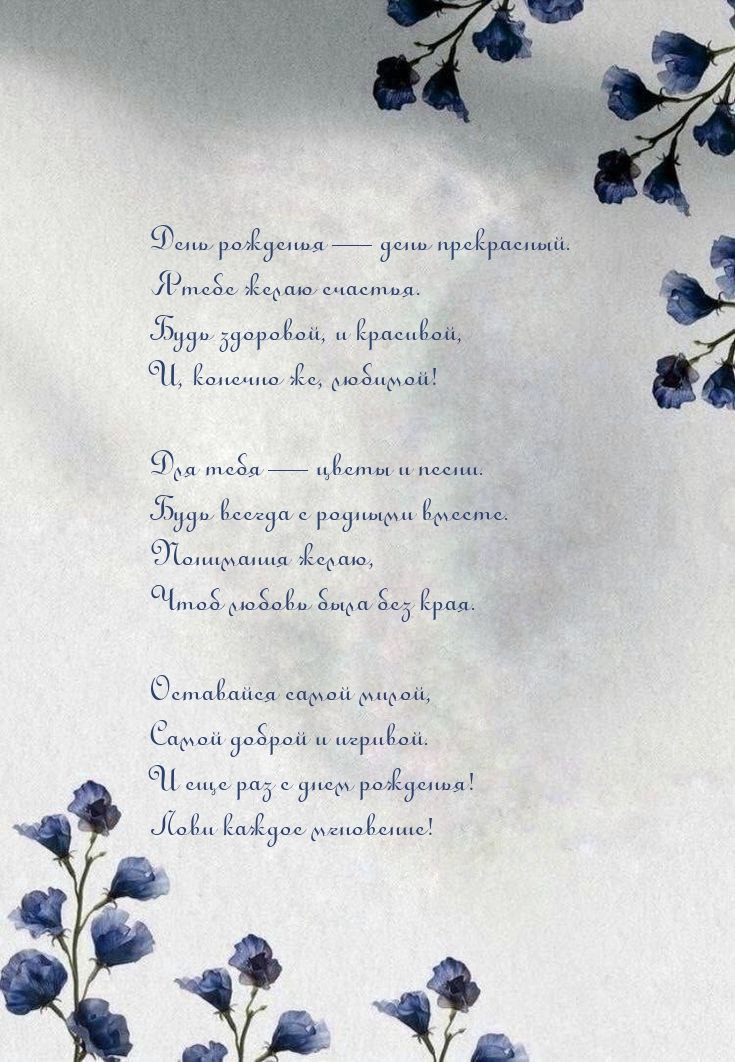 День рожденья — день прекрасный.
Я тебе желаю счастья.
Будь здоровой, и красивой,
И, конечно же, любимой!
Для тебя — цветы и песни.
Будь всегда с родными вместе.
Понимания желаю,
Чтоб любовь была без края.
Оставайся самой милой,
Самой доброй и игривой.
И еще раз с днем рожденья!
Лови каждое мгновение!